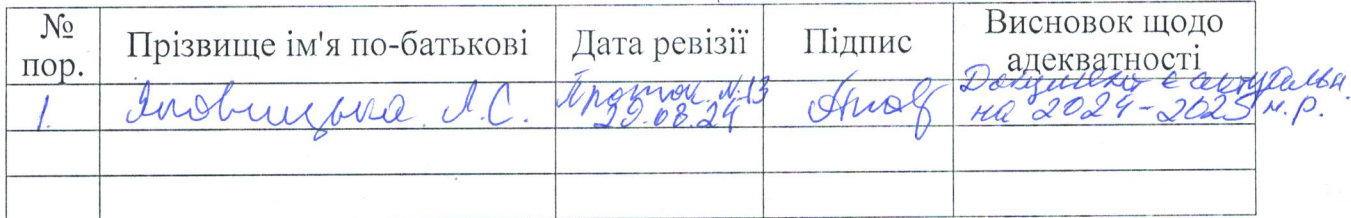 № пор. Прізвище ім'я по-батькові Дата ревізії Підпис Висновок щодо адекватності
1. Яновицька Л.С. Проток. №13 Документ є актуальн.
29.08.24 на 2024-2025 н.р.